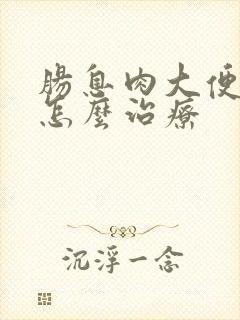 腸息肉大便
怎麼治療
沉浮一念